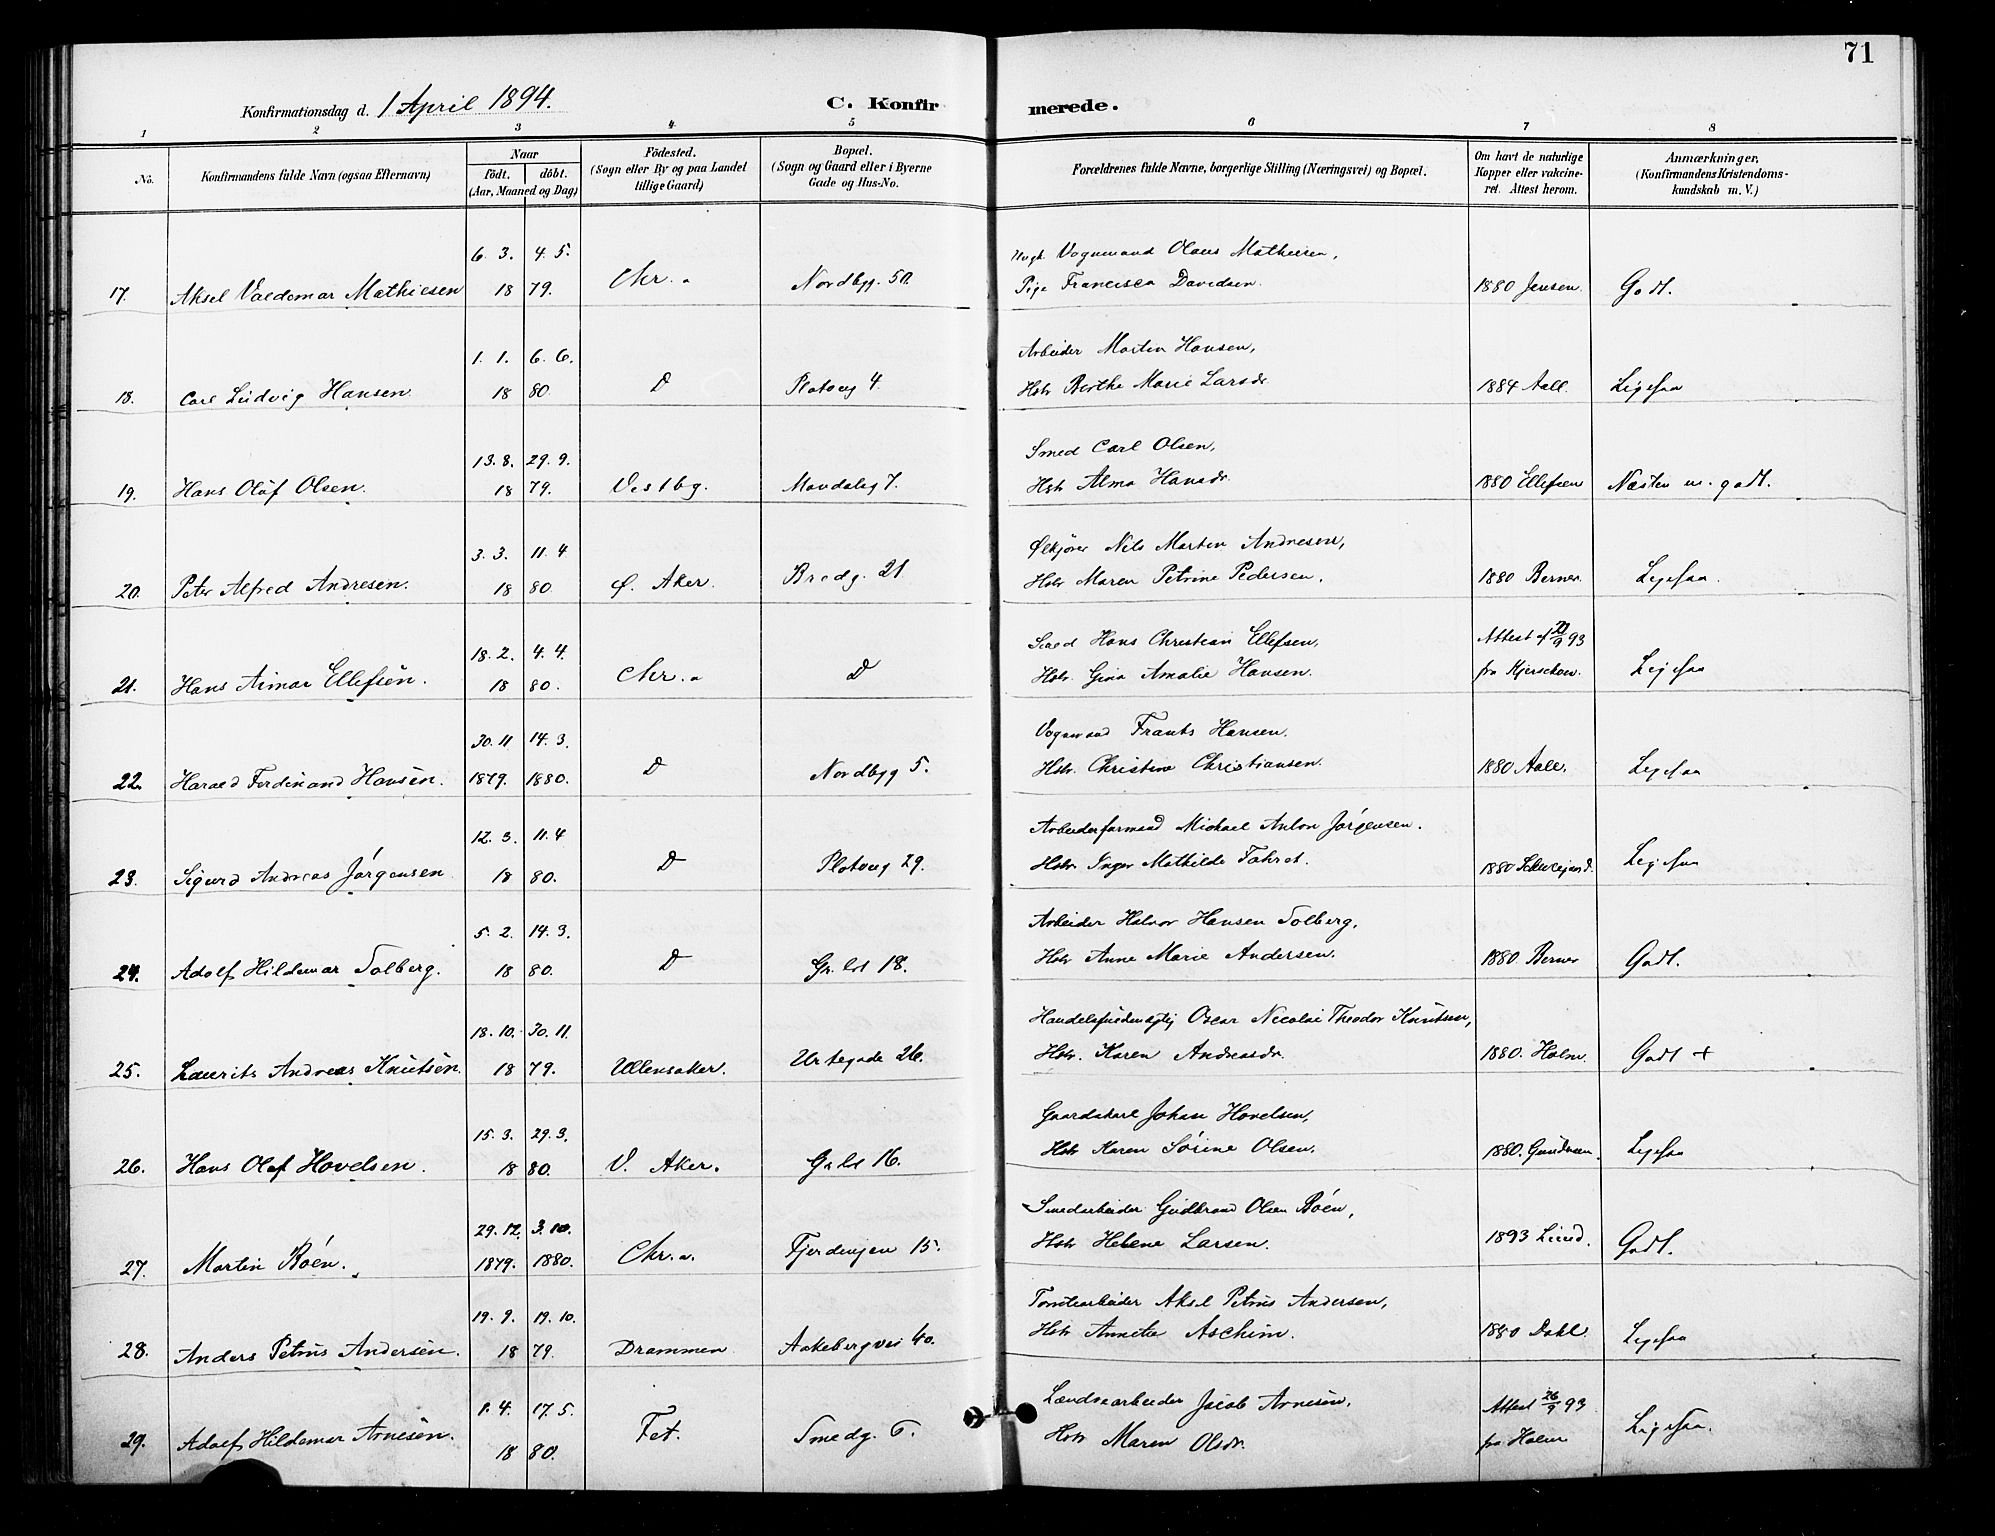 71
Konfirmationsdag d. 1 April 1894. C. Konfirmerede.
1 2 3 4 5 6 7 8
No. Konfirmandens fulde Navn (ogsaa Efternavn) Naar født. døbt. (Aar, Maaned og Dag) Fødested. (Sogn eller By og paa Landet tillige Gaard) Bopæl. (Sogn og Gaard eller i Byerne Gade og Hus-No. Forældrenes fulde Navne, borgerlige Stilling (Næringsvei) og Bopæl. Om havt de naturlige Kopper eller vakcineret. Attest herom. Anmærkninger, (Konfirmandens Kristendomskundskab m. V.)
6. 3. 4. 5. Vognmand Olaus Mathiesen,
17. Aksel Valdemar Mathiesen 18 79. Chr.a Nordbyg. 50. Pige Francisca Davidsen. 1880 Jensen. Godt.
1. 1. 6. 6. Arbeider Martin Hansen,
18. Carl Ludvig Hansen 18 80. D Platoug 4. Hstr Berthe Marie Larsdr 1884 Aall. Ligesaa
13. 8. 29. 9. Smed Carl Olsen,
19. Hans Olaf Olsen. 18 79. Vestby. Mandalsg 7. Hstr Alma Hansdr. 1880 Ellefsen Næsten m. godt.
3. 3. 11. 4 Ølkjører Nils Martin Andresen,
20. Peter Alfred Andresen. 18 80. Ø. Aker. Bredg. 21 Hstr Maren Petrine Pedersen. 1880 Berner. Ligesaa.
18. 2. 4. 4. Smed Hans Christian Ellefsen, Attest af 93
21. Hans Aimar Ellefsen. 18 80. Chr.a D Hstr. Gina Amalie Hansen. fra Kjerschow. Ligesaa
30. 11 14. 3. Vognmand Frants Hansen.
22. Harald Ferdinand Hansen. 1879. 1880. D Nordbyg 5. Hstr. Christine Christiansen. 1880 Aall. Ligesaa
12. 3. 11. 4 Arbeiderformand Michael Anton Jørgensen.
23. Sigurd Andreas Jørgensen 18 80. D Platoug 29. Hstr Inger Mathilde 1880 Ligesaa
5. 2. 14. 3. Arbeider Halvor Hansen Solberg,
24. Adolf Hildemar Solberg. 18 80. D Gr.ld 18. Hstr Anne Marie Andersen. 1880 Berner Godt.
18. 10. 30. 11. Oscar Nicolai Theodor Knutsen,
25. Laurits Andreas Knutsen. 18 79. Ullensaker. Urtegade 26. Hstr. Karen Andreasdr. 1880. Holm. Godt +
15. 3. 29. 3. Gaardskarl Johan Hovelsen,
26. Hans Olaf Hovelsen. 18 80. V. Aker. Gr.ld 16. Hstr Karen Sørine Olsen. 1880. Gundersen. Ligesaa
29. 12. 3. 10. Smedarbeider Gudbrand Olsen Røen,
27. Martin Røen. 1879. 1880. Chr.a. Fjerdingen 15. Hstr Helene Larsen. 1893 Lund. Godt.
19. 9. 19. 10. Aksel Petrus Andersen,
28. Anders Petrus Andersen. 18 79. Drammen Aakebergvei 40. Hstr Annette Aschim. 1880 Dahl. Ligesaa
1. 4. 17. 5. Lændsearbeider Jacob Arnesen, Attest 26/9 93
29. Adolf Hildemar Arnesen. 18 80. Fet. Smedg. 6. Hstr Maren Olsdr. fra Holm Ligesaa.